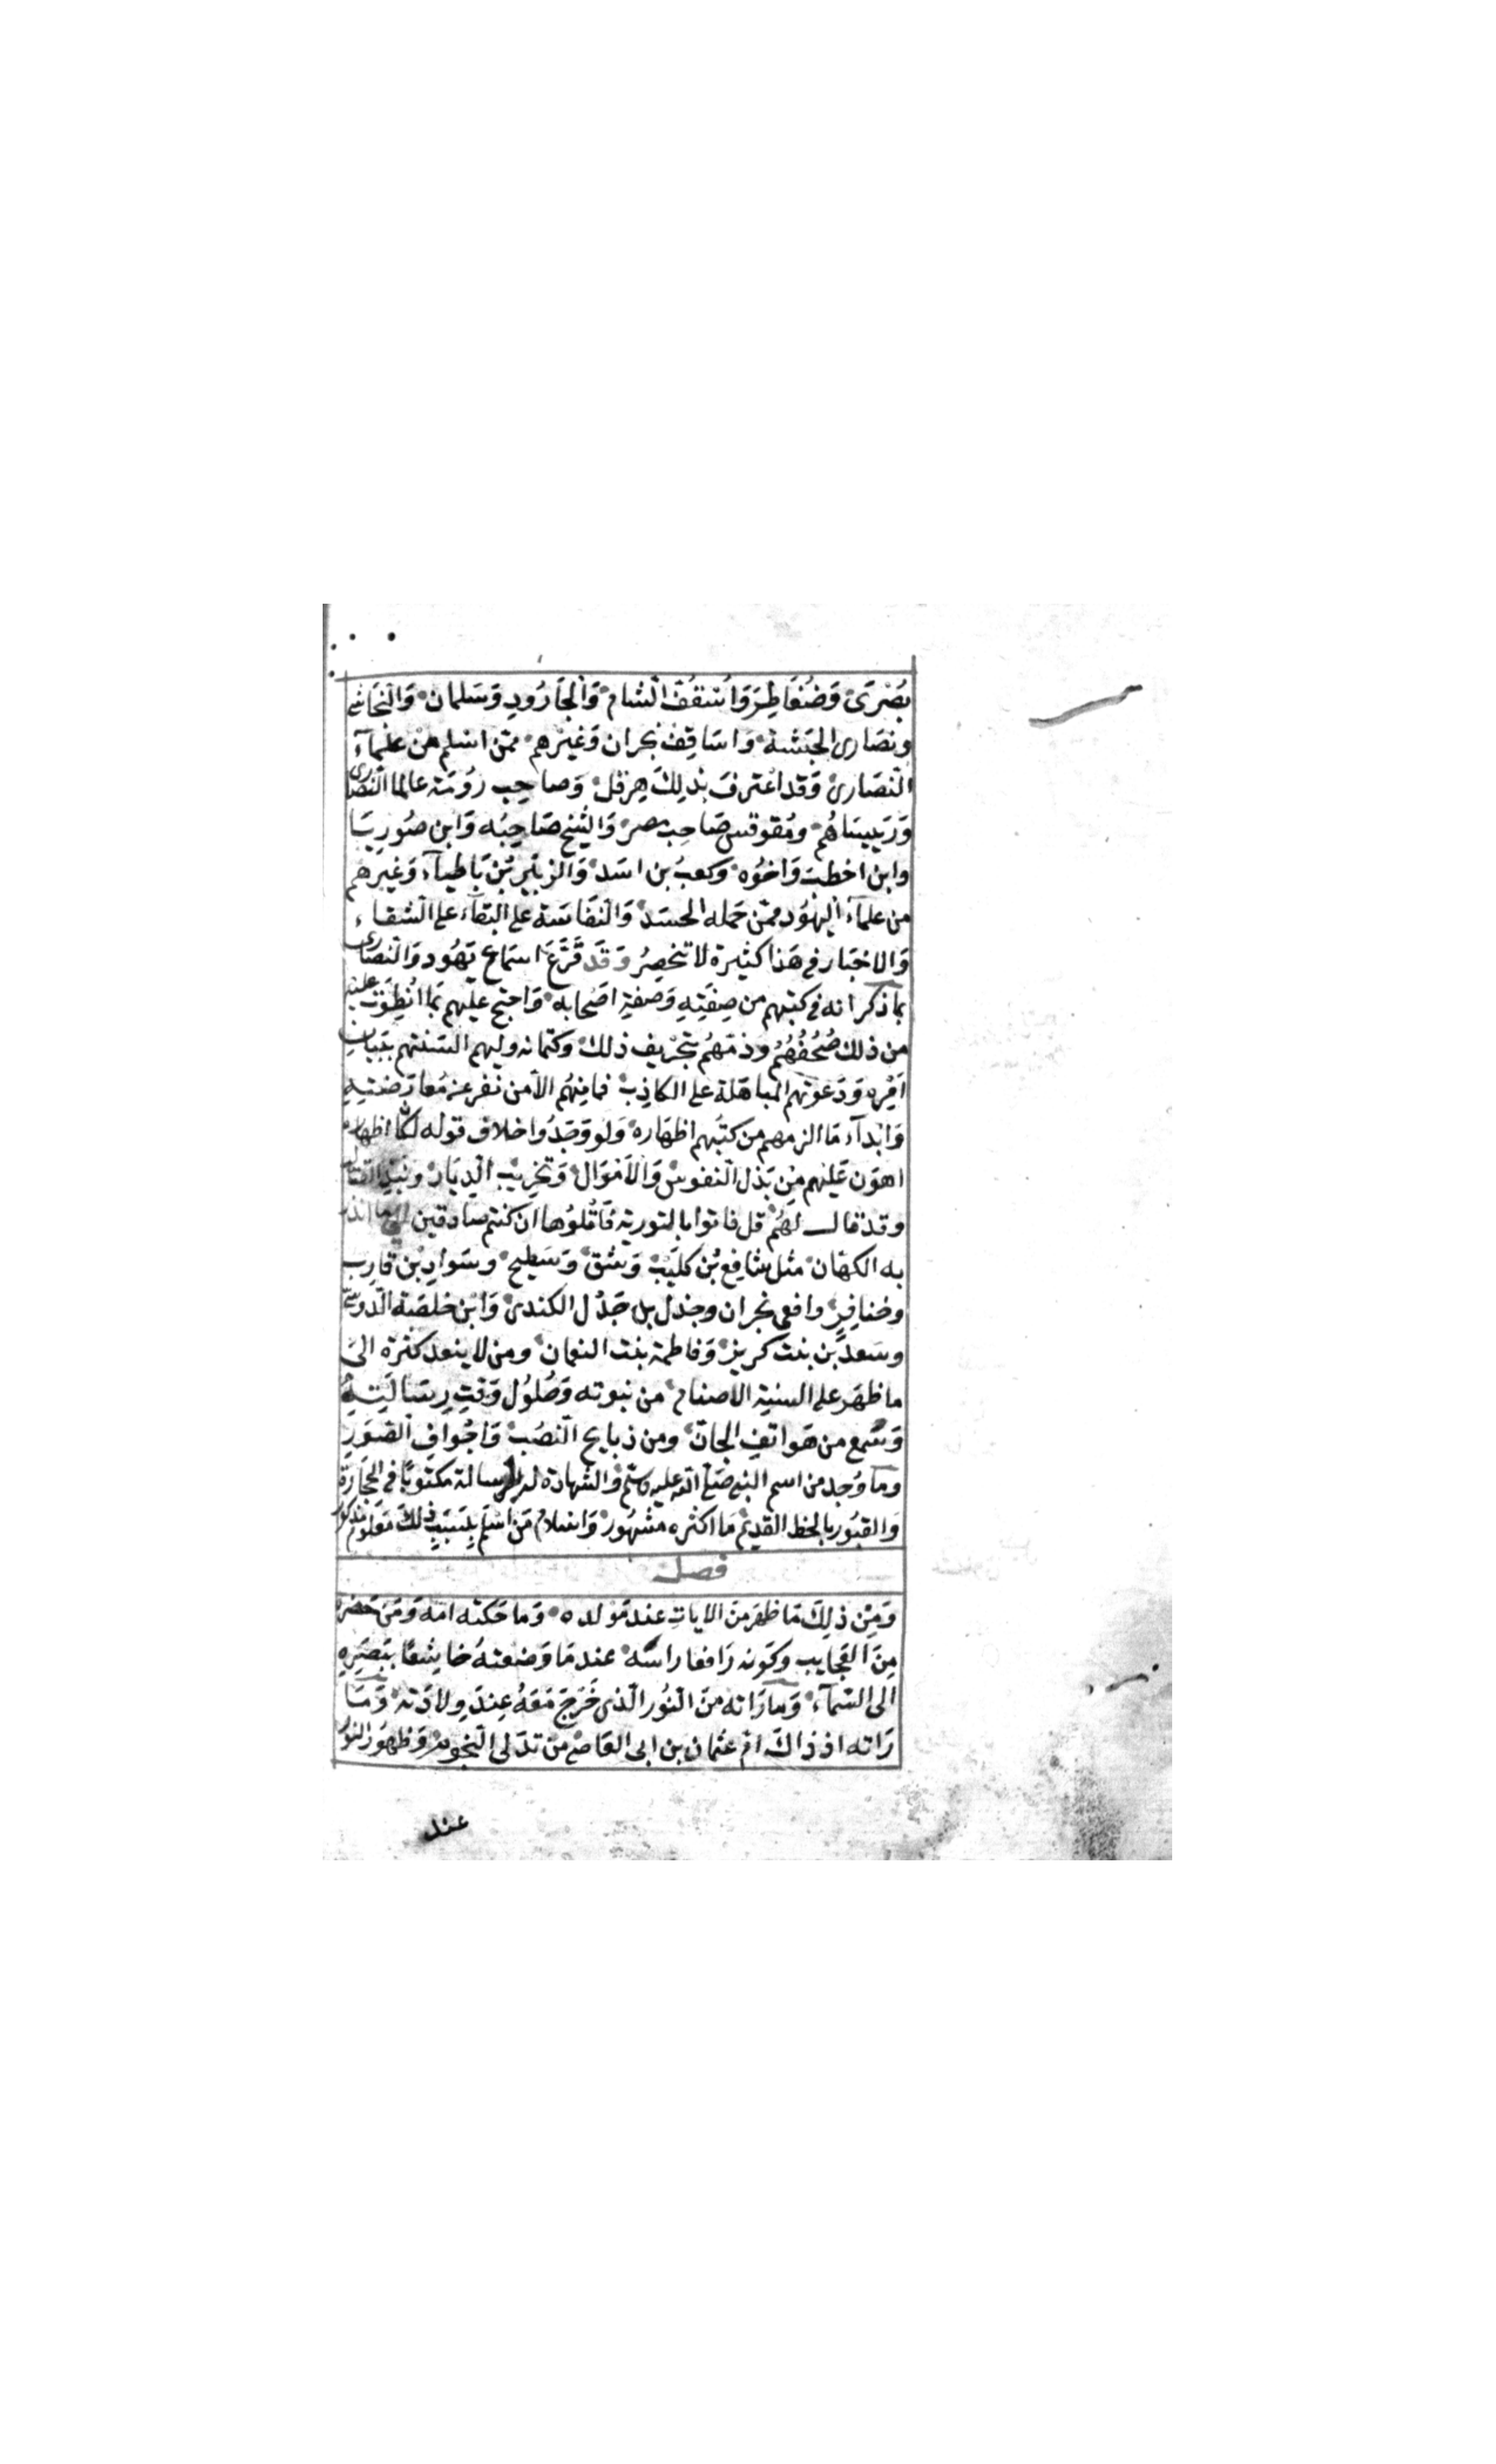 بُصْرَى وَضُغَاطِرَ وَاُسْقُفُّ الشام وَالْجَارُودِ وَسَلمان وَالنجَاشى
ونصَارى الحبَشة وَاسَاقِف نجران وَغيْرهم ممّن اسْلم من علماۤء
النصَارى وَقد اعْترفَ بذلِكَ هِرقل وَصاحِب رُومَة عالما النصَارى
وَرَييسَاهُم ومُقوقس صَاحِب مصر وَالشيْخ صَاحِبُه وَابن صُورِيَا
وابن اخطبَ وَاخوُه وكعبُ بن اسَد وَالزبَيْر بْن بَاطياۤء وَغيَرهم
من علماۤء اليهُود ممّن حَمله الحسَد وَالنفَاسَة على البَقاۤء على الشقاء
وَالاخبَار فى هَذا كثيرة لا تنحَصِرُ وَقَد قَرَّعَ اسمَاع يَهُود وَالنصَارى
بمَا ذكرَ انه فى كتبهم من صِفَتِهِ وَصفةِ اصْحَابه وَاحتج عليهم بمَا انْطوَت عليْه
من ذلك صُحُفُهُمُ وذمَّهُم بتحْريف ذلك وكتمانه وليهم السنتهم ببَيَانِ
اَمْرِه وَدَعوَتهم المبَاهَلة على الكاذِب فمَا مِنهُم الاّ من نفر عَن مُعَارَضتِهِ
وَابْدَاۤء مَا الزمهم من كتبُهم اظهَاره وَلو وَجَدُوا خلاف قوله لكَان اظهاره
اهوَن عَليْهم مِن بَذل النفوس وَالاَموَال وَتخرِيْب الدِيَار وَنبذ القتال
وقد قال لهُم قل فاتوا بالتورية فَاتْلُوْهَا ان كنتم صَادقين الى ما انذر
به الكهّان مثل شَافِع بْن كليَبْ وَشِق وَسَطِيح وسَوادِ بْن قارِب
وخنافِرٍ وافعى نجران وجذل بن جَذْل الكندى وَابْن خلصَة الدَوسِىّ
وسَعد بْن بنت كريز وَفاطمة بنت النعمان ومن لا ينعد كثرة الىَ
ما ظهَر على السنةِ الاصنام من نبوته وَحُلوُل وَقتِ رِسَالَتِهِ
وَسُمع من هَواتفِ الجانّ ومن ذبايح النصُب وَاجْوافِ الصُوَرِ
ومَا وُجد من اسم النبى صَلى الله عليه وسَلّم وَالشهادة له بالرسالة مكتوبًا فى الحجَارَة
وَالقبُور بالخط القدِيم مَا اكثره مشهُور وَاسْلامُ مَن اسْلم بِسَبَبِ ذلكَ مَعلوم مذكور
فصل
وَمِنْ ذلِكَ مَا ظهَرَ منَ الايَاتِ عند مَولده وَمَا حَكته امّه وَمَن حَضره
مِنَ العَجَايب وكوَنه رَافعا راسَه عند مَا وَضعتهُ خاشِعًا ببَصَرِهِ
الى السّماۤء وَمَا رَاته منَ النُور الّذى خَرَجَ مَعَهُ عِندَ وِلادَته وَمَا
رَاته اذ ذاكَ امّ عثمان بن ابى العَاص مِن تدَلى النجوم وَظهوُر النُور
عند